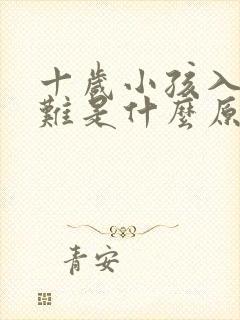 十歲小孩入
難是什麼原
青安